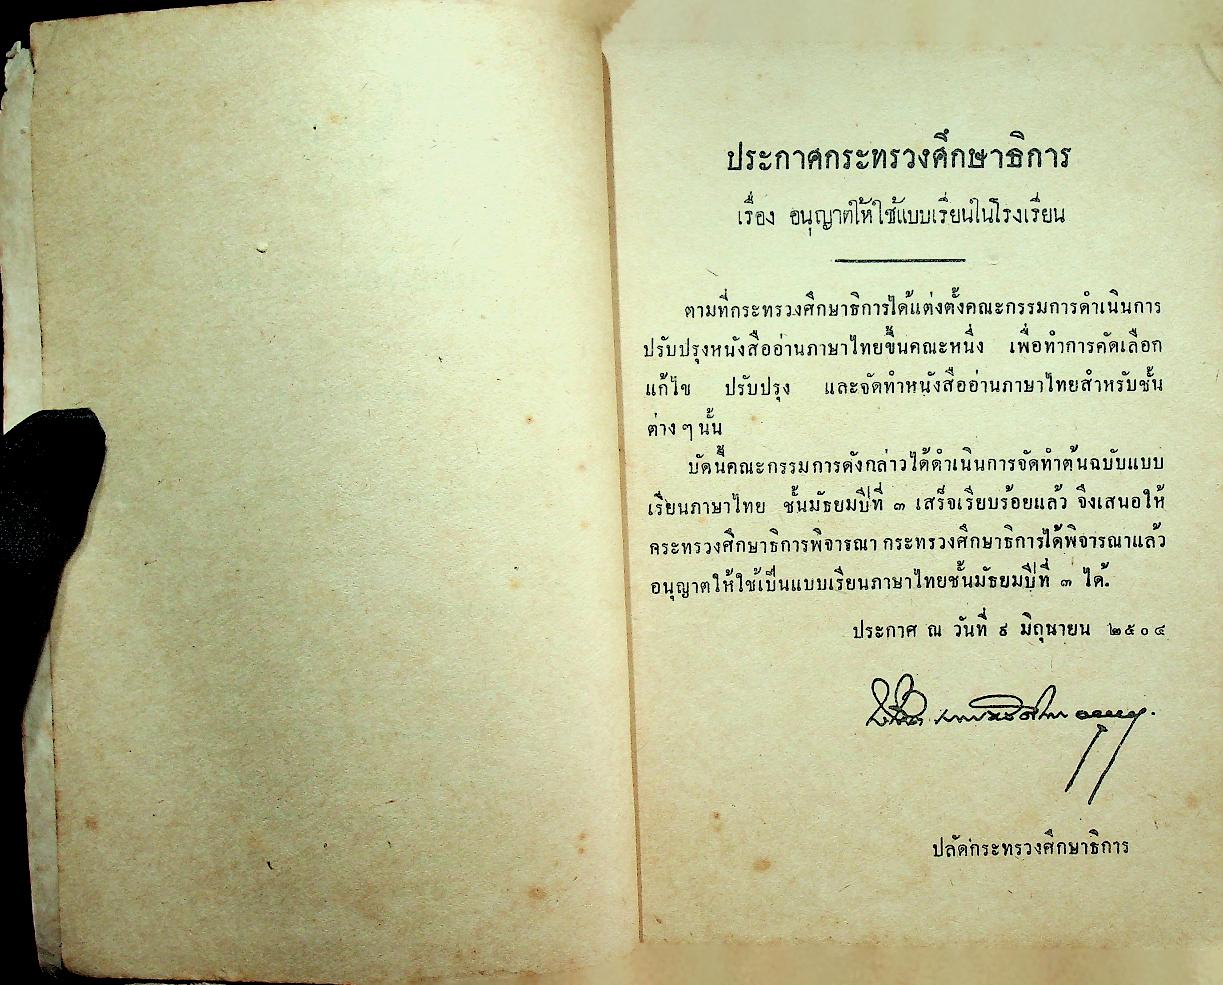 ประกาศกระทรวงศึกษาธิการ
เรื่อง อนุญาตให้ใช้แบบเรียนในโรงเรียน
ตามที่กระทรวงศึกษาธิการได้แต่งตั้งคณะกรรมการดำเนินการ
ปรับปรุงหนังสืออ่านภาษาไทยขึ้นคณะหนึ่ง เพื่อทำการคัดเลือก
แก้ไข ปรับปรุง และจัดทำหนังสืออ่านภาษาไทยสำหรับชั้น
ต่าง ๆ นั้น
บัดนี้คณะกรรมการดังกล่าวได้ดำเนินการจัดทำต้นฉบับแบบ
เรียนภาษาไทย ชั้นมัธยมปีที่ ๓ เสร็จเรียบร้อยแล้ว จึงเสนอให้
กระทรวงศึกษาธิการพิจารณา กระทรวงศึกษาธิการได้พิจารณาแล้ว
อนุญาตให้ใช้เป็นแบบเรียนภาษาไทยชั้นมัธยมปีที่ ๓ ได้.
ประกาศ ณ วันที่ ๙ มิถุนายน ๒๕๐๔
ปลัดกระทรวงศึกษาธิการ